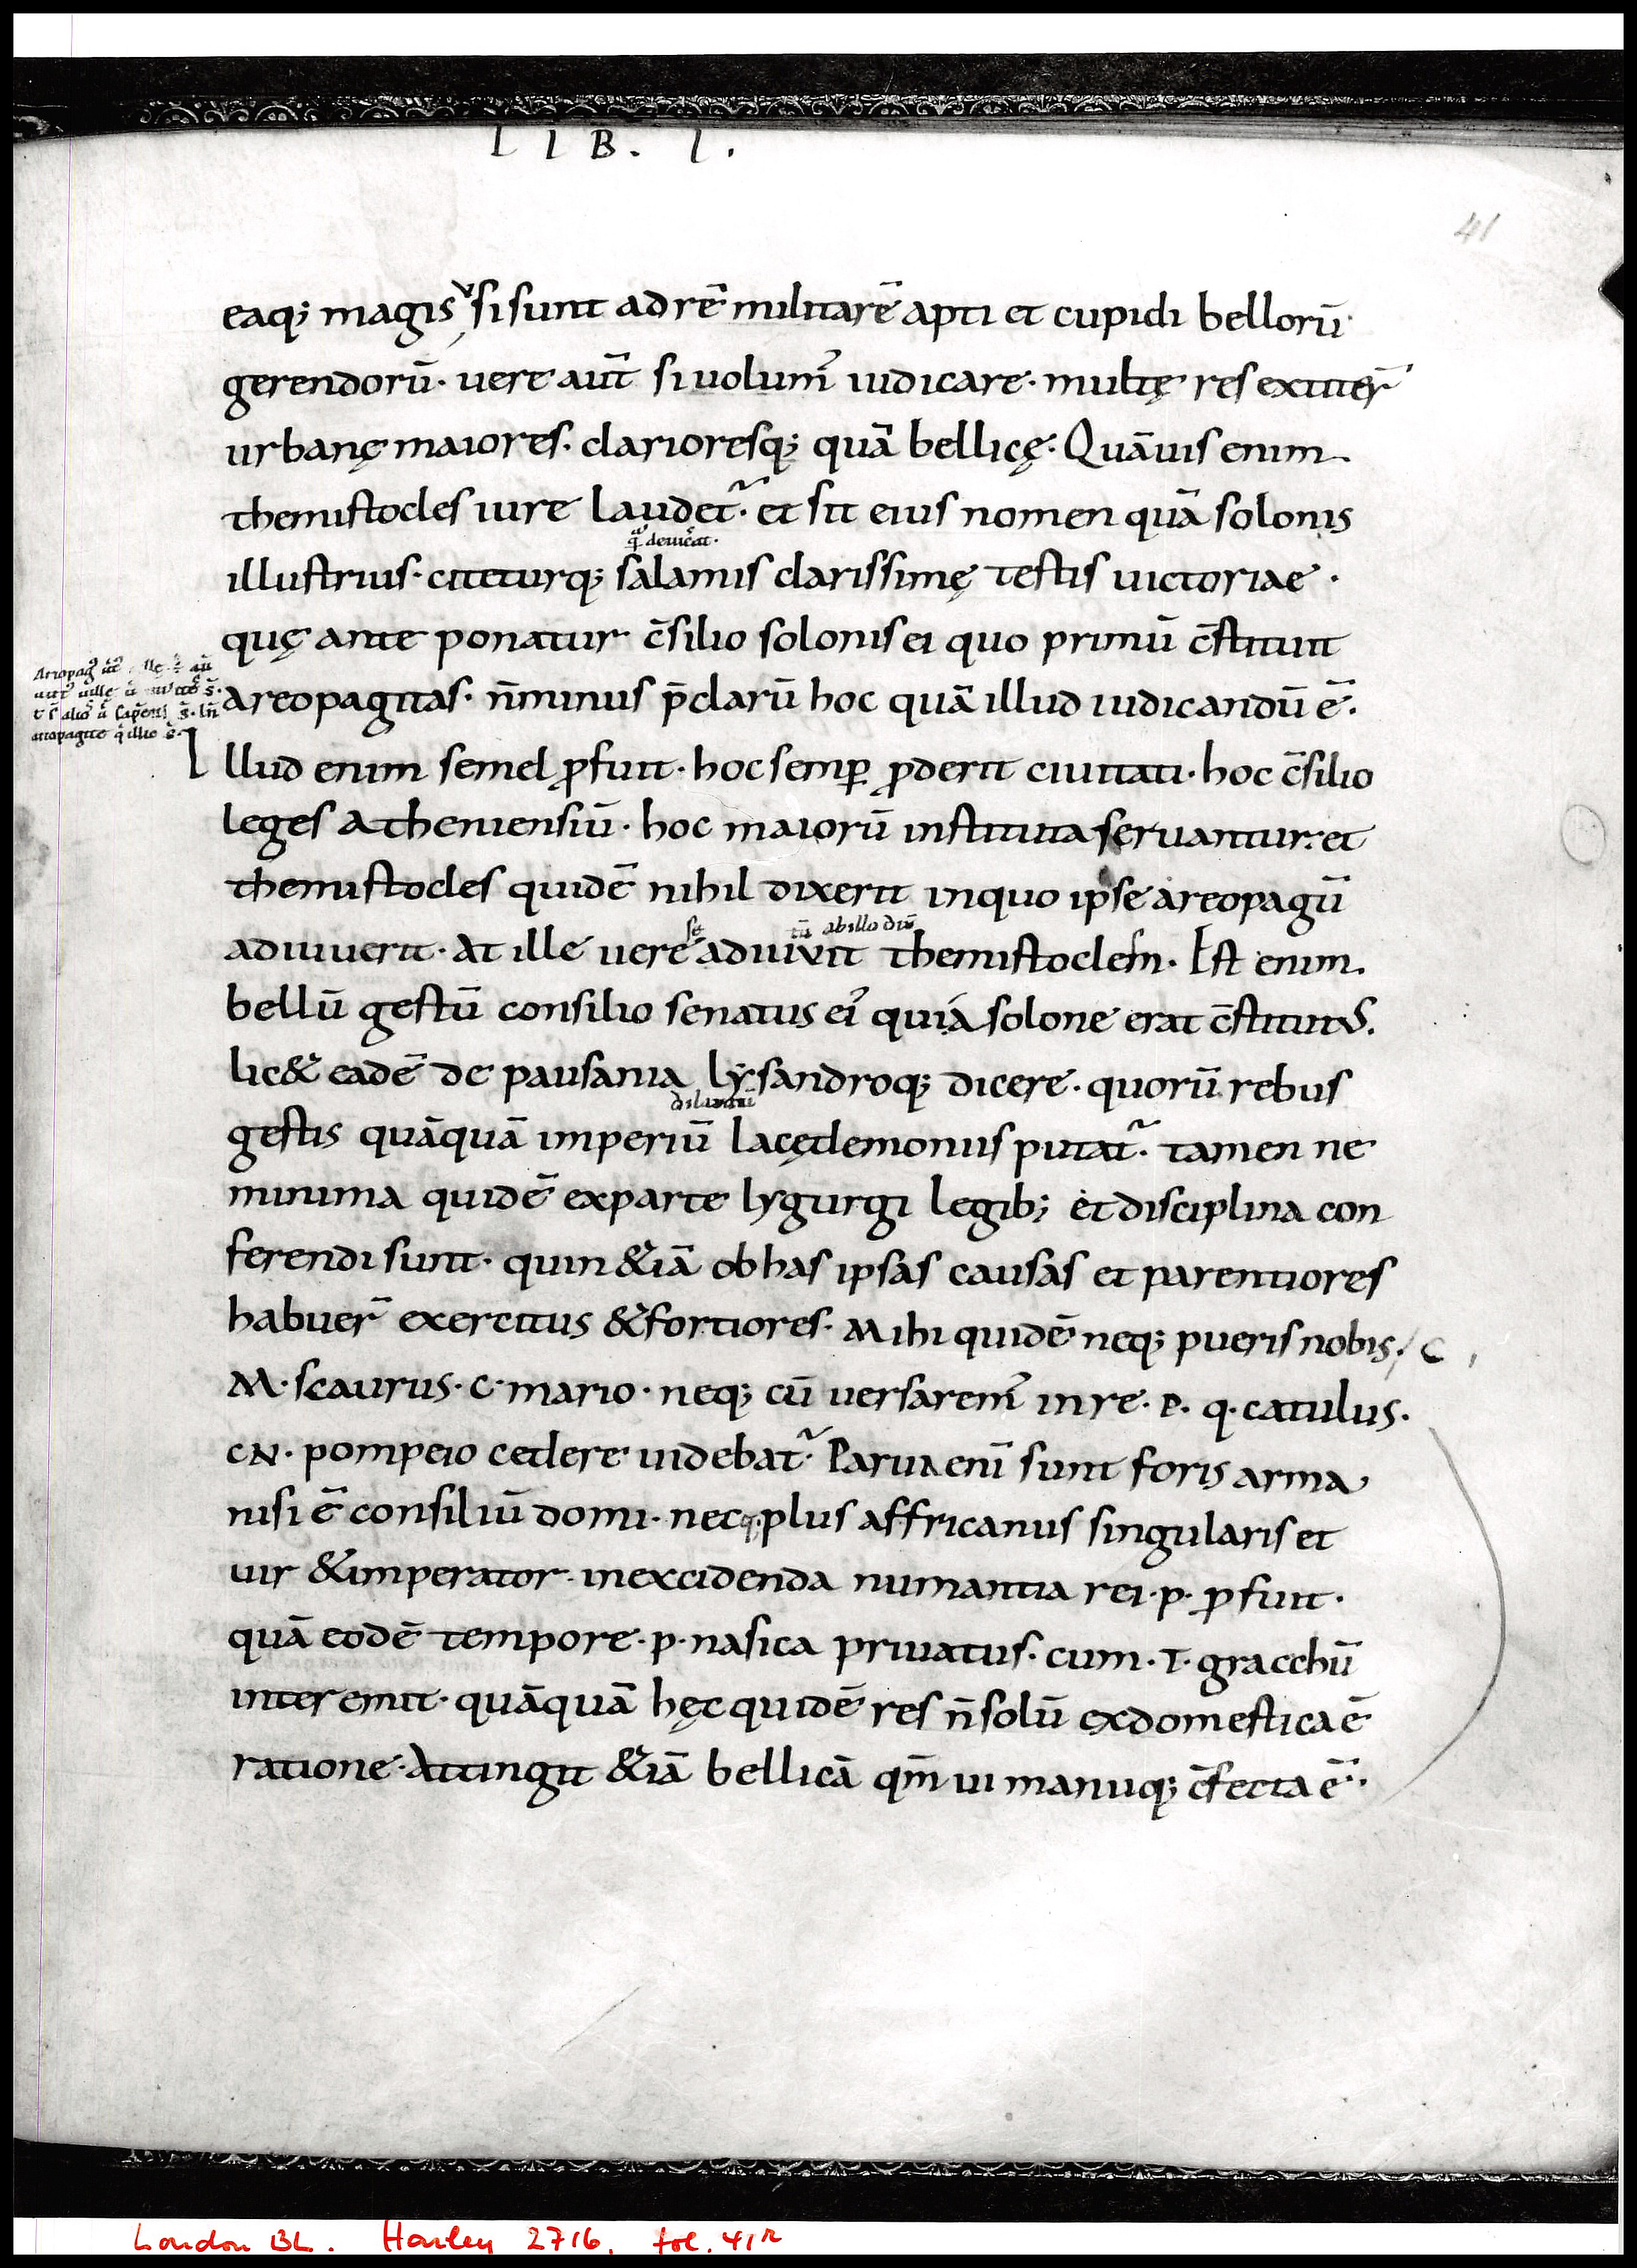 LIB. I.
41
eaq; magis si sunt ad rē militarē apti et cupidi bellorū
gerendorū· uere aut̄ si uolum̄ iudicare· multę res extiter̄
urbanę maiores· clarioresq; quā bellicę· Quāuis enim
themistocles iure laudet᷑· et sit eius nomen quā solonis
illustrius· citeturq; salamis clarissimę testis uictoriae·
quę ante ponatur c̄silio solonis ei quo primū c̄stituit
areopagitas· n̄ minus p̄clarū hoc quā illud iudicandū ē·
Illud enim semel ꝓfuit· hoc semꝑ ꝓderit ciuitati· hoc c̄silio
leges atheniensiū· hoc maiorū instituta seruantur· et
themistocles quidē nihil dixerit in quo ipse areopagū
adiuuerit· At ille uere adiuvit themistoclem· Est enim
bellū gestū consilio senatus ei᷒ qui a solone erat c̄stitutus.
lic& eadē de pausania lysandroq; dicere· quorū rebus
gestis quāquā imperiū lacędemoniis putat᷑· tamen ne
minima quidē ex parte lygurgi legib; et disciplina con
ferendi sunt· quin &iā ob has ipsas causas et parentiores
habuer̄ exercitus & fortiores· Mihi quidē neq; pueris nobis·
C
M· scaurus· C· mario· neq; cū uersarem᷒ in re· P· q· catulus·
CN· pompeio cedere uidebat᷑· Parua eni sunt foris arma
nisi ē consiliū domi· nec plus affricanus singularis et
uir & imperator· in excidenda numantia rei· p· ꝓfuit·
quā eodē tempore· p· nasica priuatus· cum· T· gracchū
interemit· quāquā hęc quidē res n̄ solū ex domestica ē
ratione· Attingit &iā bellicā qm̄ ui manuq; c̄fecta ē·
London BL. Harley 2716. fol. 41r